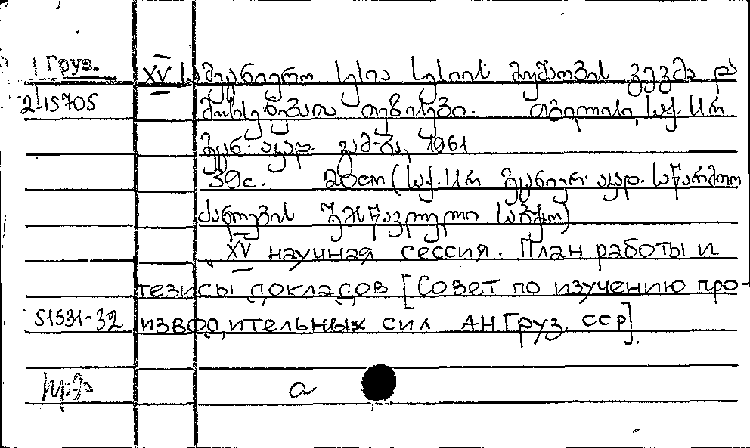 Груз.
XV სამეცნიერო სესია სესიის მუშაობის გეგმა და
2/15705
მოხსენებათა თეზისები. თბილისი, საქ. სსრ
მეცნ. აკად. გამ-ბა, 1961
39с. 20cm (საქ. სსრ მეცნიერ. აკად. საწარმოო
ძალების შემსწავლელი საბჭო)
XV научная сессия. План работы и
тезисы докладов [Совет по изучению про-
S1531-32 изводительных сил АН.Груз. ССР].
a